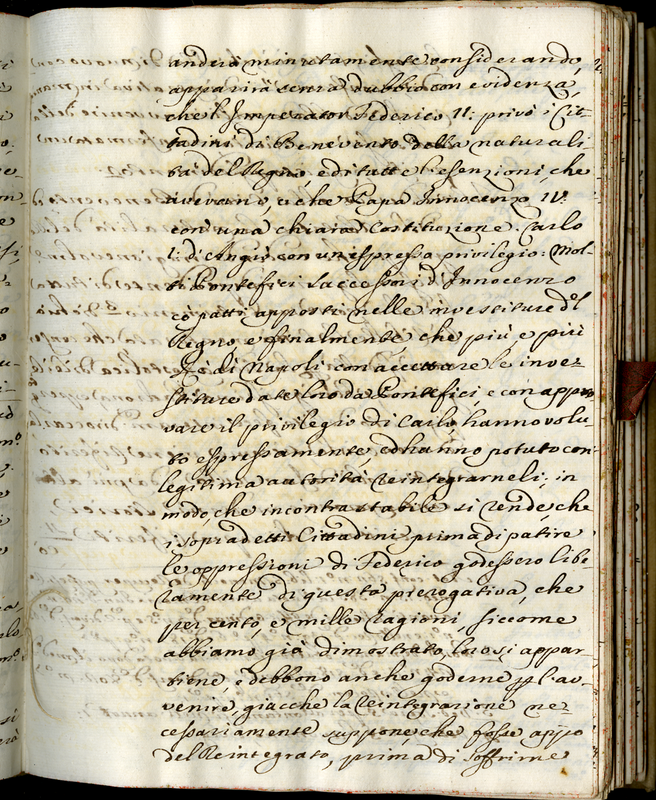 anderà minutamente considerando,
apparirà senza dubbio con evidenza,
che l'Imperator Federico II: privò i Cit-
tadini di Benevento della naturali-
tà del Regno, e di tutte l'esenzioni, che
ivi, e che Papa Innocenzo IV:
con una chiara Costituzione: Carlo
I: d'Angiò con un espresso privilegio: Mol-
ti Pontefici Successori d'Innocenzo
cò patti apposti nelle investiture del
Regno, e finalmente che più e più
Rè di Napoli con accettare le inve-
stiture date loro da Pontefici, e con appro-
vare il privilegio di Carlo hanno volu-
to espressamente, ed hanno potuto con
legitima autorità reintegrarneli: in
modo, che incontrastabile si rende, che
i sopradetti Cittadini prima di patire
le oppressioni di Federico godessero libe-
ramente di questa prerogativa, che
per cento, e mille ragioni, siccome
abbiamo già dimostrato, loro si appar-
tiene, e debbono anche goderne per l'av-
venire, giacche la reintegrazione ne-
cessariamente suppone, che fosse appo
del Reintegrato, prima di soffrirne